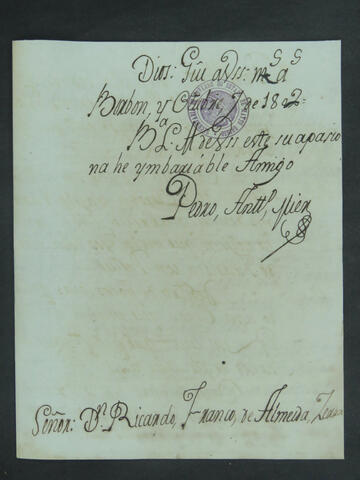 Dios: Gũe a Vs: mˢ aˢ
Borbon, y Octubre, de 1802
B L M de Vs este su apasio
na he ymbariable Amigo
Pedro, Antt, Mier
Señor: Dⁿ Ricardo, Franco, de Almeida,